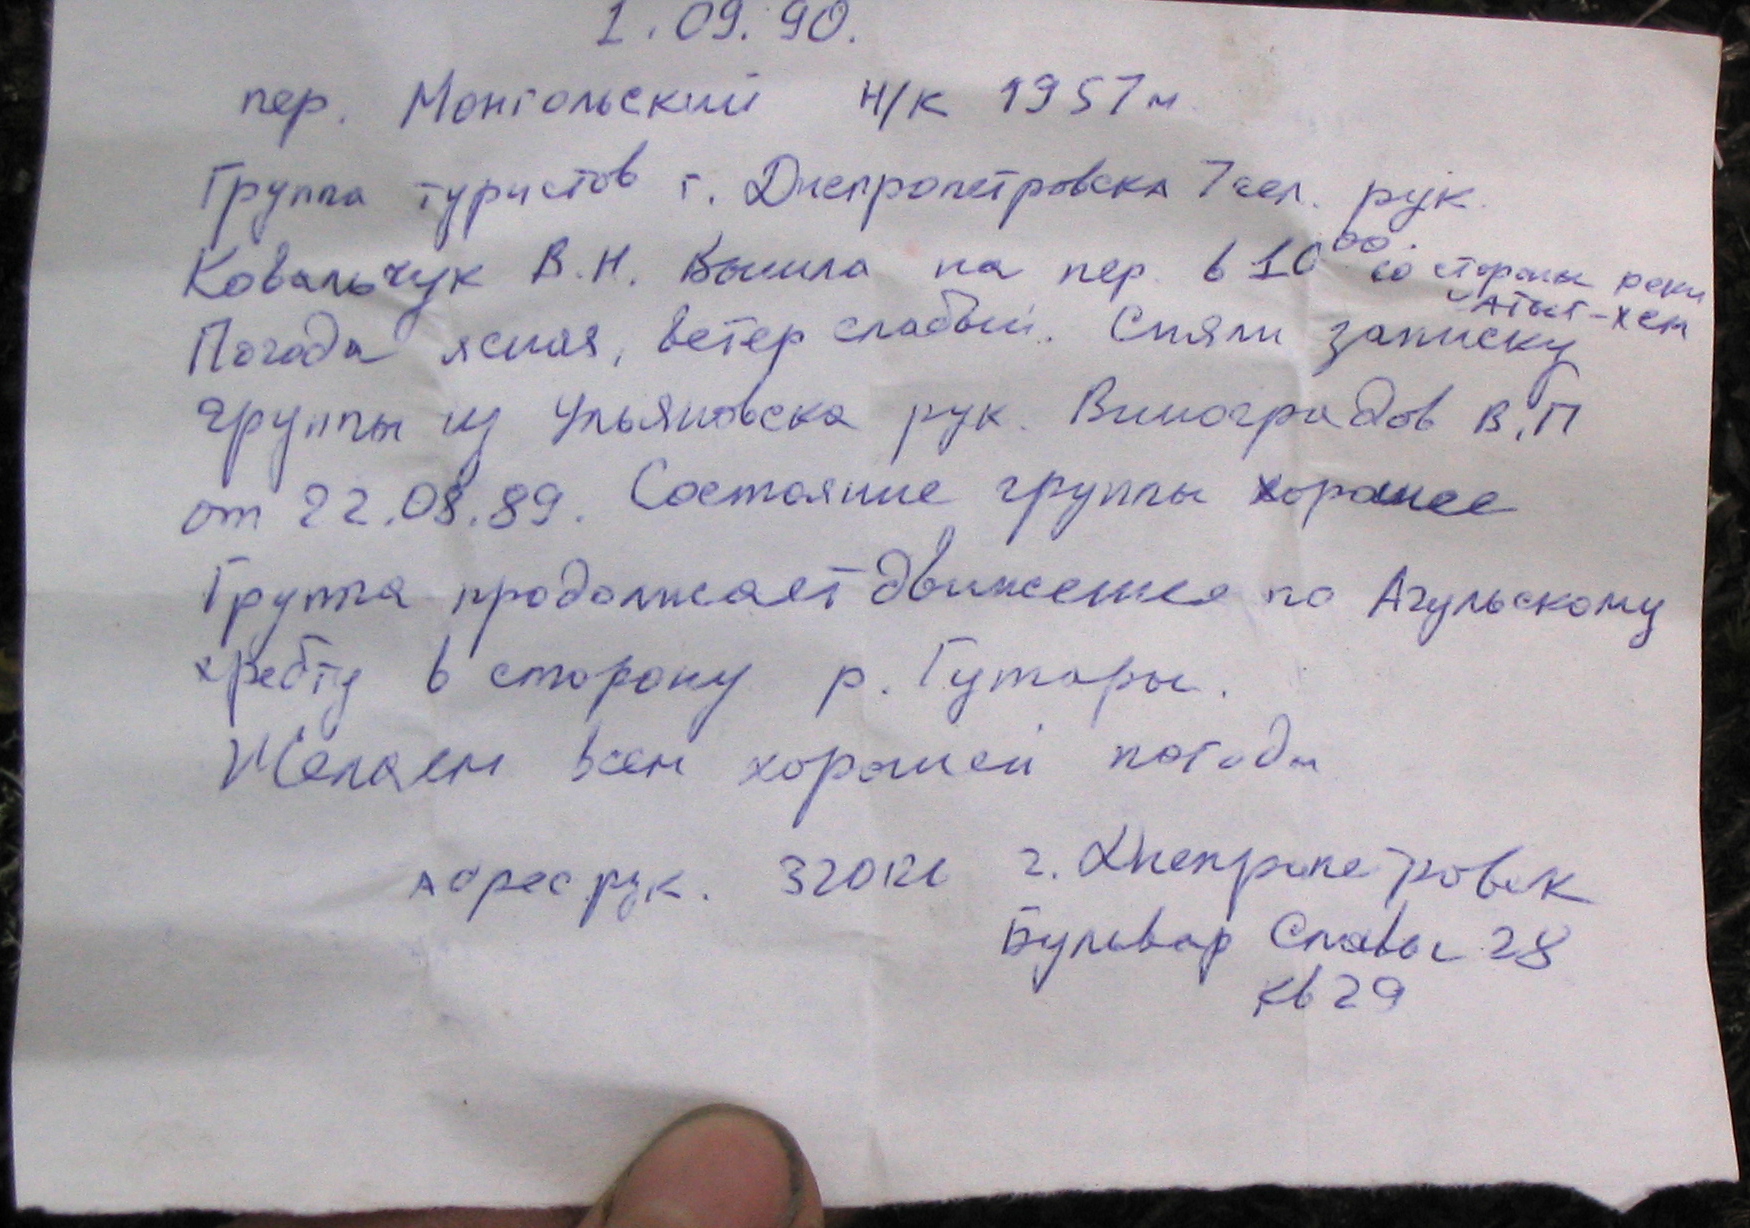 1.09.90.
пер. Монгольский н/к 1957м
Группа туристов г. Днепропетровска 7 чел. рук.
Ковальчук В.Н. Вышла на пер. в 10⁰⁰. со стороны реки
Атыг-хем
Погода ясная, ветер слабый. Сняли записку
группы из Ульяновска рук. Виноградов В.П
от 22.08.89. Состояние группы хорошее
Группа продолжает движение по Агульскому
хребту в сторону р. Гутары.
Желаем всем хорошей погоды
Адрес рук. г. Днепропетровск
Бульвар Славы 28
кв 29